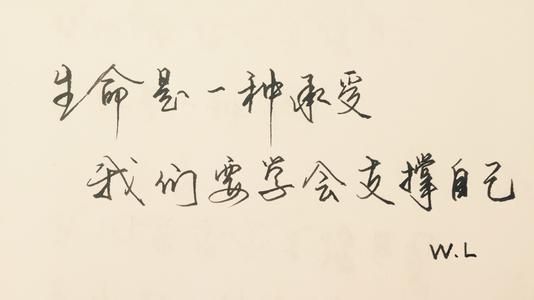 生命是一种承受
我们要学会支撑自己
W.L